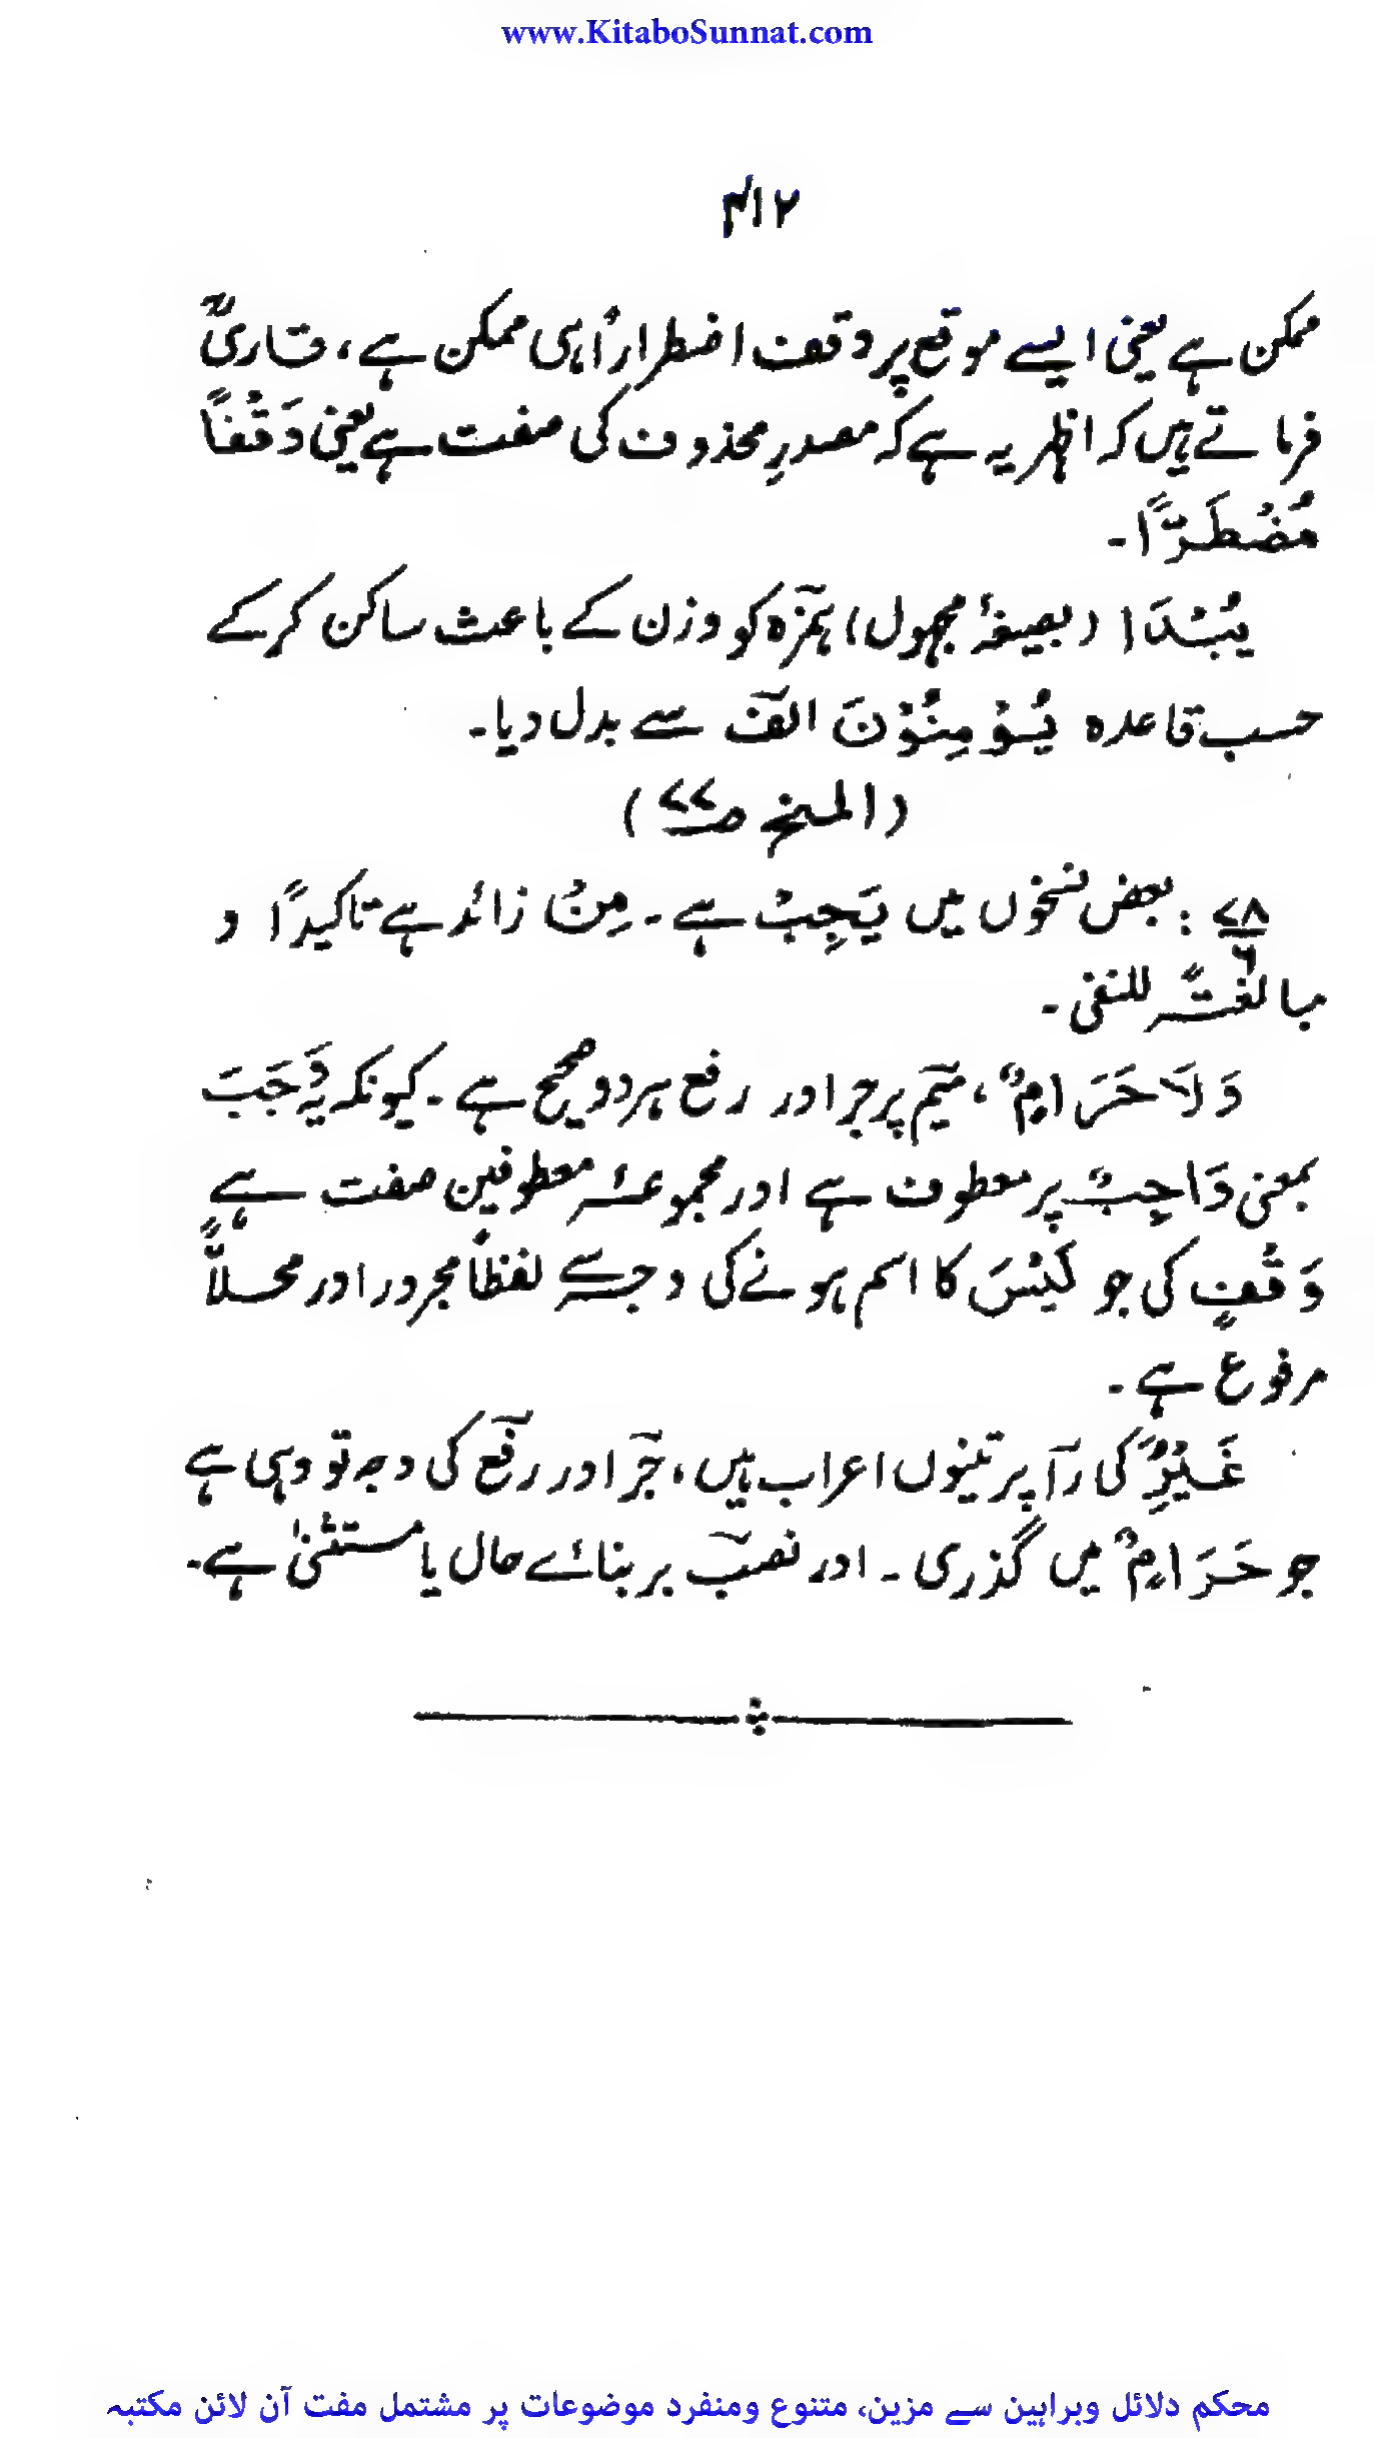 www.KitaboSunnat.com
۴۱۲
ممکن ہے یعنی ایسے موقع پر وقف اضطراراً ہی ممکن ہے، قاریؒ
فرماتے ہیں کہ اظہر یہ ہے کہ مصدرِ محذوف کی صفت ہے یعنی وَقْفًا
مُضْطَرًّا۔
یُبْتَدَا (بصیغۂ مجہول) ہمزہ کو وزن کے باعث ساکن کرکے
حسب قاعدہ یُؤْمِنُوْنَ الف سے بدل دیا۔
(المنح ص۷۷)
۷۸/۶ : بعض نسخوں میں یَجِبْ ہے۔ مِنْ زائد ہے تاکیدًا و
مبالغۃً للنفی۔
وَلَا حَرَامٌٍ، میم پر جر اور رفع ہر دو صحیح ہے۔ کیونکہ یہ وَجَبَ
بمعنی وَاجِبٌ پر معطوف ہے اور مجموعۂ معطوفین صفت ہے
وَقْفٍ کی جو لَیْسَ کا اسم ہونے کی وجہ سے لفظاً مجرور اور محلاً
مرفوع ہے۔
غَیْرُِ َ کی را پر تینوں اعراب ہیں، جر اور رفع کی وجہ تو وہی ہے
جو حَرَامٌٍ میں گذری۔ اور نصب بر بنائے حال یا مستثنیٰ ہے۔
محکم دلائل وبراہین سے مزین، متنوع ومنفرد موضوعات پر مشتمل مفت آن لائن مکتبہ